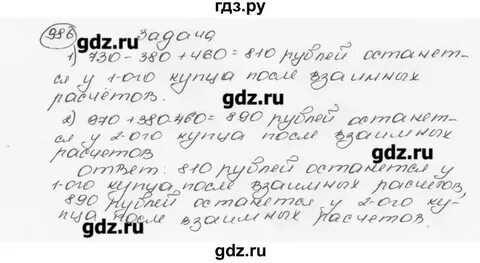 гдз.ру
986 Задача
1) 730 - 380 + 460 = 810 рублей останет-
gdz.ru
ся у 1-ого купца после взаимных
расчётов.
gdz.ru
2) 970 + 380.460 = 890 рублей останет-
gdz.ru
ся у 2-ого купца после взаимных
расчетов
gdz.ru
Ответ: 810 рублей останется у
1-ого купца после взаимных расчетов,
890 рублей останется у 2-ого ку-
gdz.ru
пца после взаимных расчетов.
gdz.ru